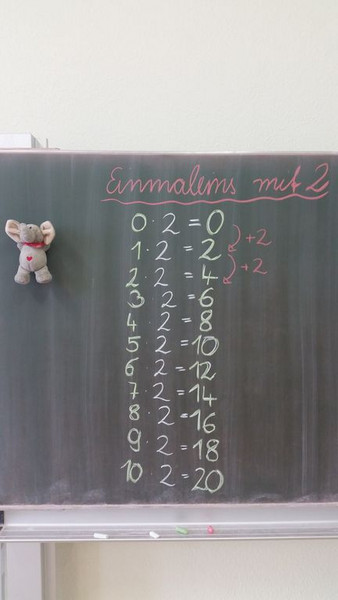 Einmaleins mit 2
0 · 2 = 0
+2
1 · 2 = 2
+2
2 · 2 = 4
3 · 2 = 6
4 · 2 = 8
5 · 2 = 10
6 · 2 = 12
7 · 2 = 14
8 · 2 = 16
9 · 2 = 18
10 · 2 = 20